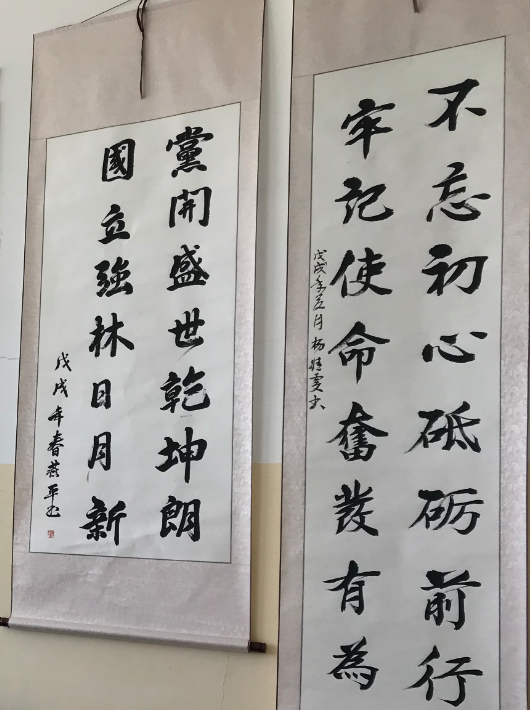 黨開盛世乾坤朗
國立強林日月新
戊戌年春燕平书
不忘初心砥砺前行
牢记使命奮发有為
戊戌年五月杨